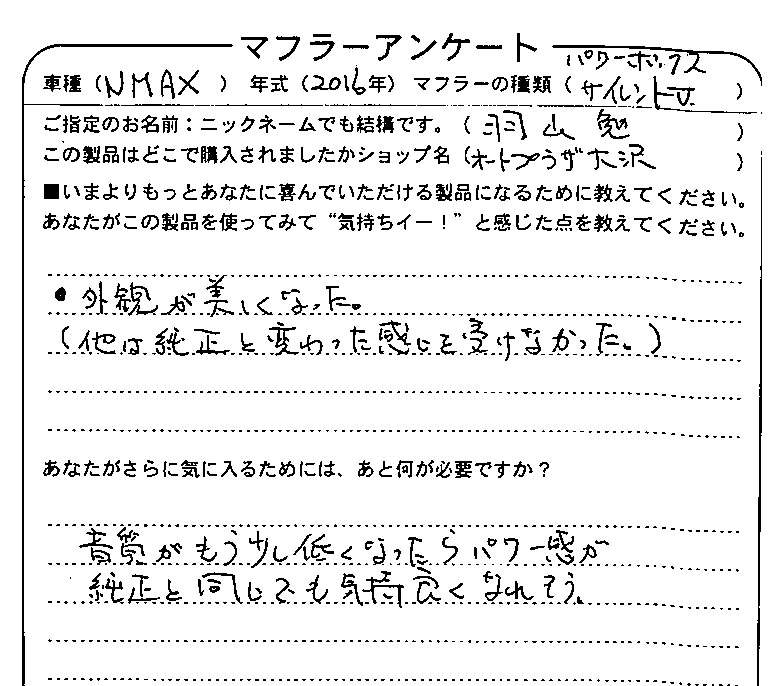 マフラーアンケート
車種（NMAX） 年式（2016年） マフラーの種類（パワーボックス サイレントV）
ご指定のお名前：ニックネームでも結構です。（羽山 勉）
この製品はどこで購入されましたかショップ名（オートプラザ大沢）
■いまよりもっとあなたに喜んでいただける製品になるために教えてください。
あなたがこの製品を使ってみて“気持ちイー！”と感じた点を教えてください。
●外観が美しくなった。
（他は純正と変わった感じを受けなかった。）
あなたがさらに気に入るためには、あと何が必要ですか？
音質がもう少し低くなったらパワー感が
純正と同じでも気持良くなれそう。